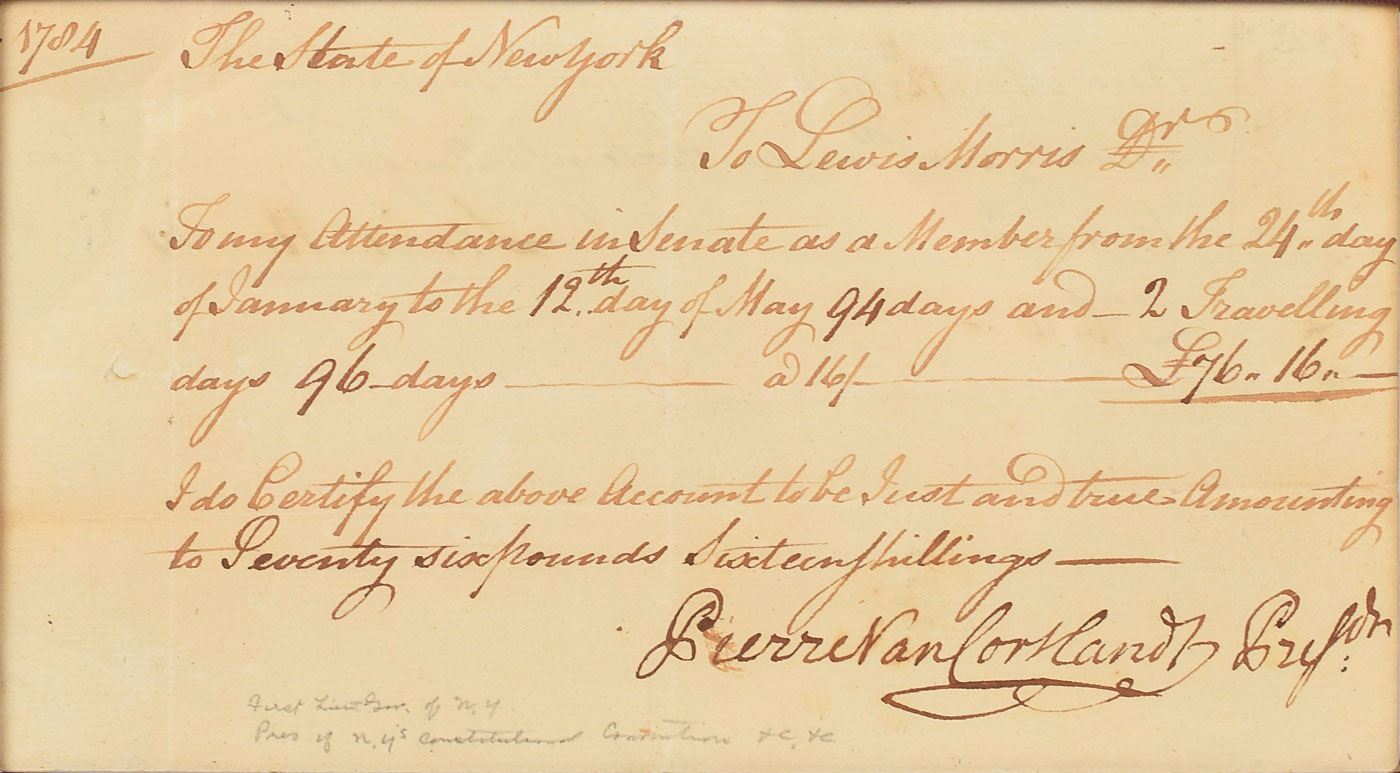 1784
The State of New York
To Lewis Morris Dr
To my Attendance in Senate as a Member from the 24th day
of January to the 12th day of May 94 days and 2 Travelling
days 96 days a 16/ £76 " 16 "
I do Certify the above Account to be Just and true Amounting
to Seventy six pounds Sixteen shillings
Pierre Van Cortlandt Presdt
First Lieut Gov. of N.Y.
Pres of N.Y's constitutional Convention &c, &c